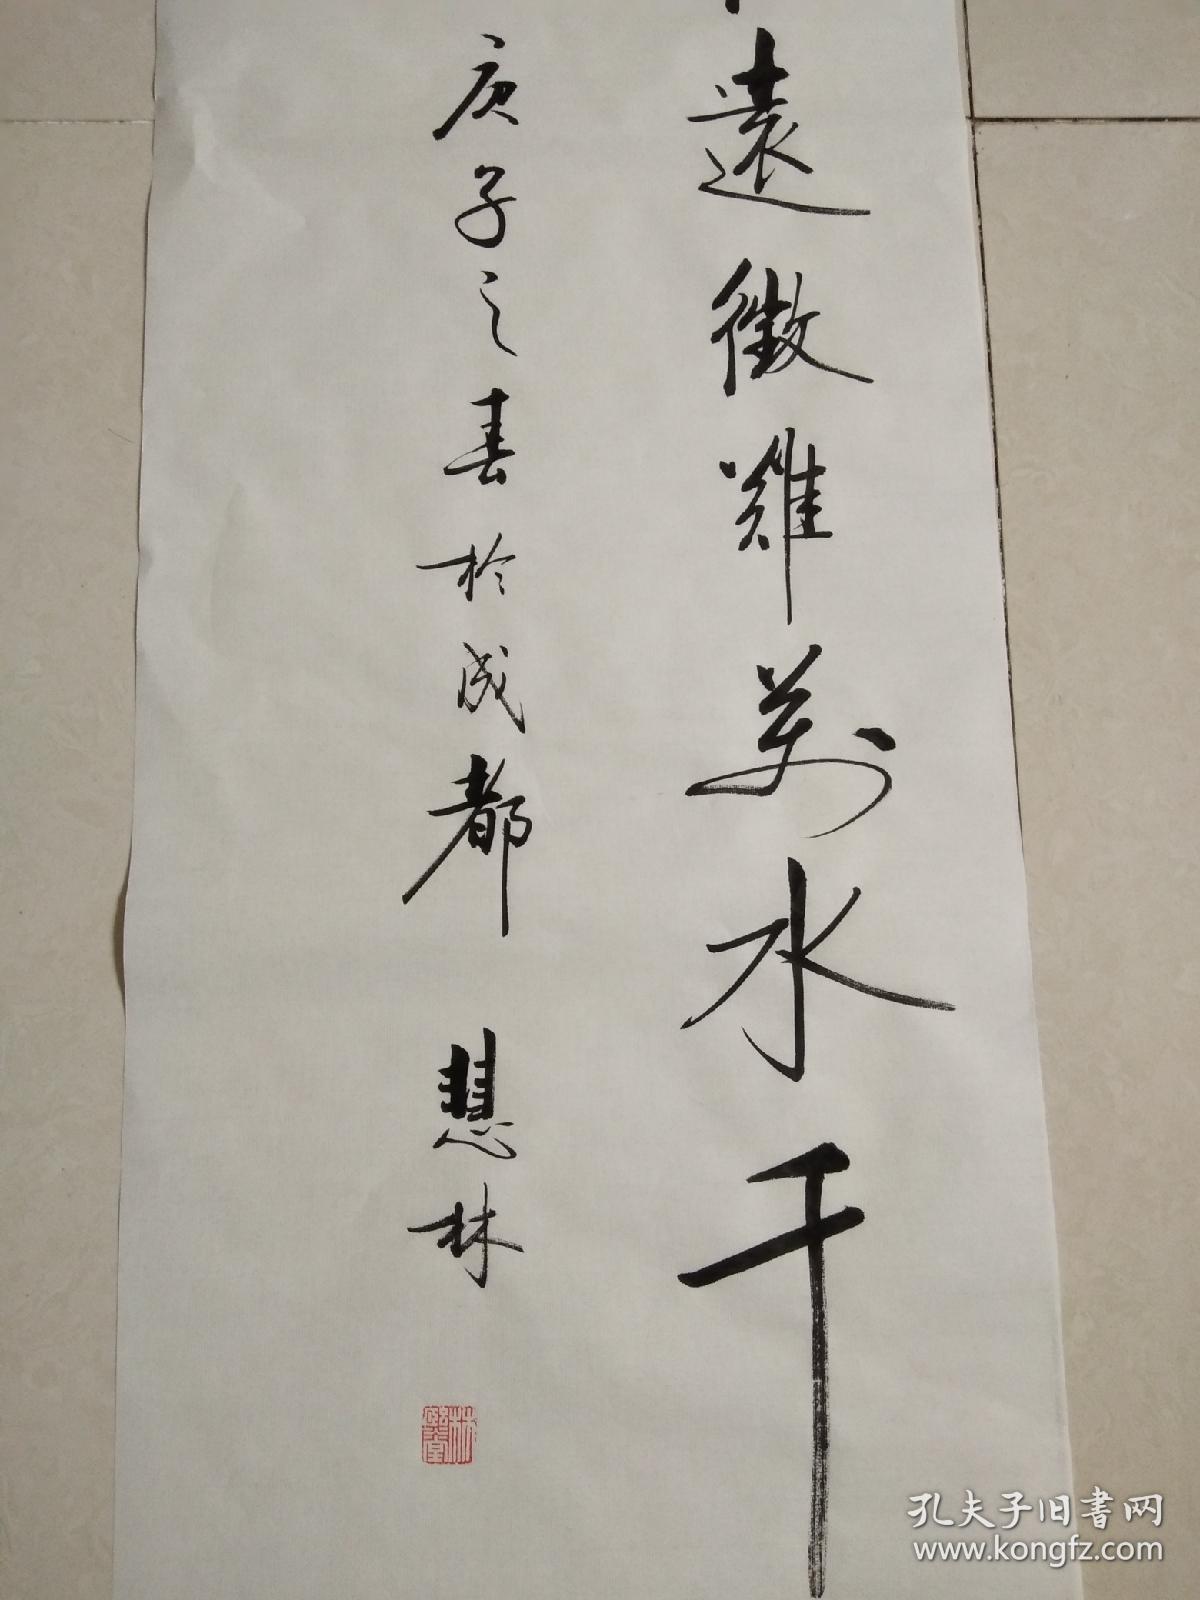 遠徵難萬水千
庚子之春於成都 慧林
孔夫子旧書网
www.kongfz.com